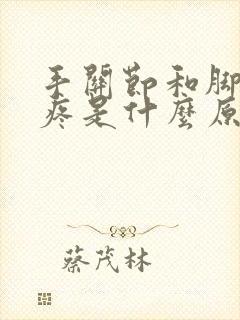 手關節和腳
疼是什麼原
蔡茂林